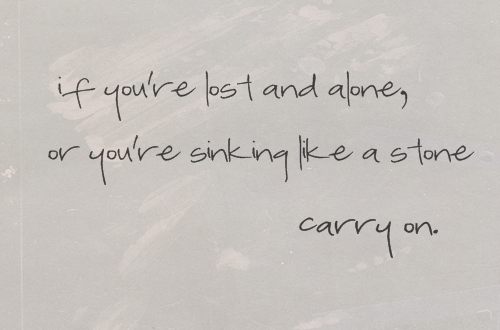 if you're lost and alone,
or you're sinking like a stone
carry on.